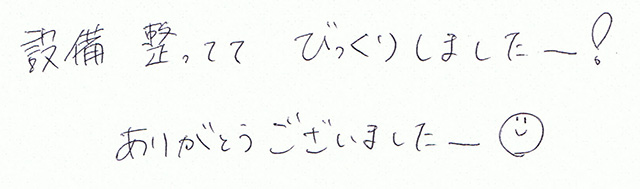 設備 整ってて びっくりしましたー!
ありがとうございましたー